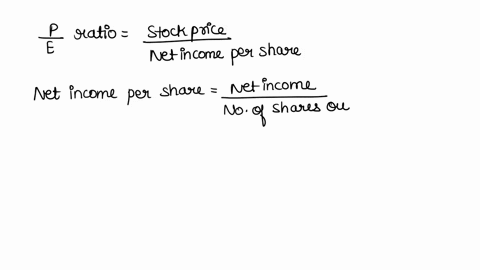 P/E ratio = Stock price / Net income per share
Net income per share = Net income / No. of shares ou